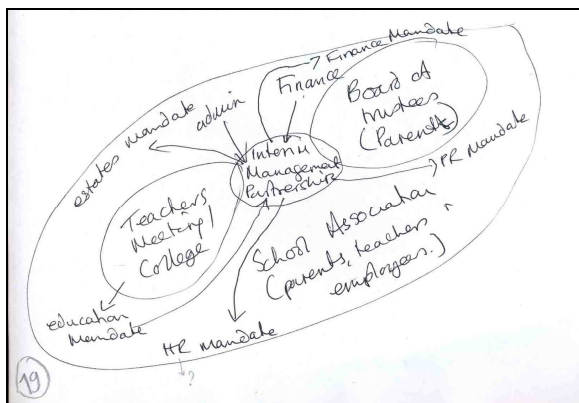 Finance Mandate
Finance
admin
estates mandate
Board of
trustees
(Parents)
Interim
Management
Partnerships
PR Mandate
Teachers
Meeting/
College
School Association
(parents, teachers,
employees.)
education
Mandate
HR mandate
?
19